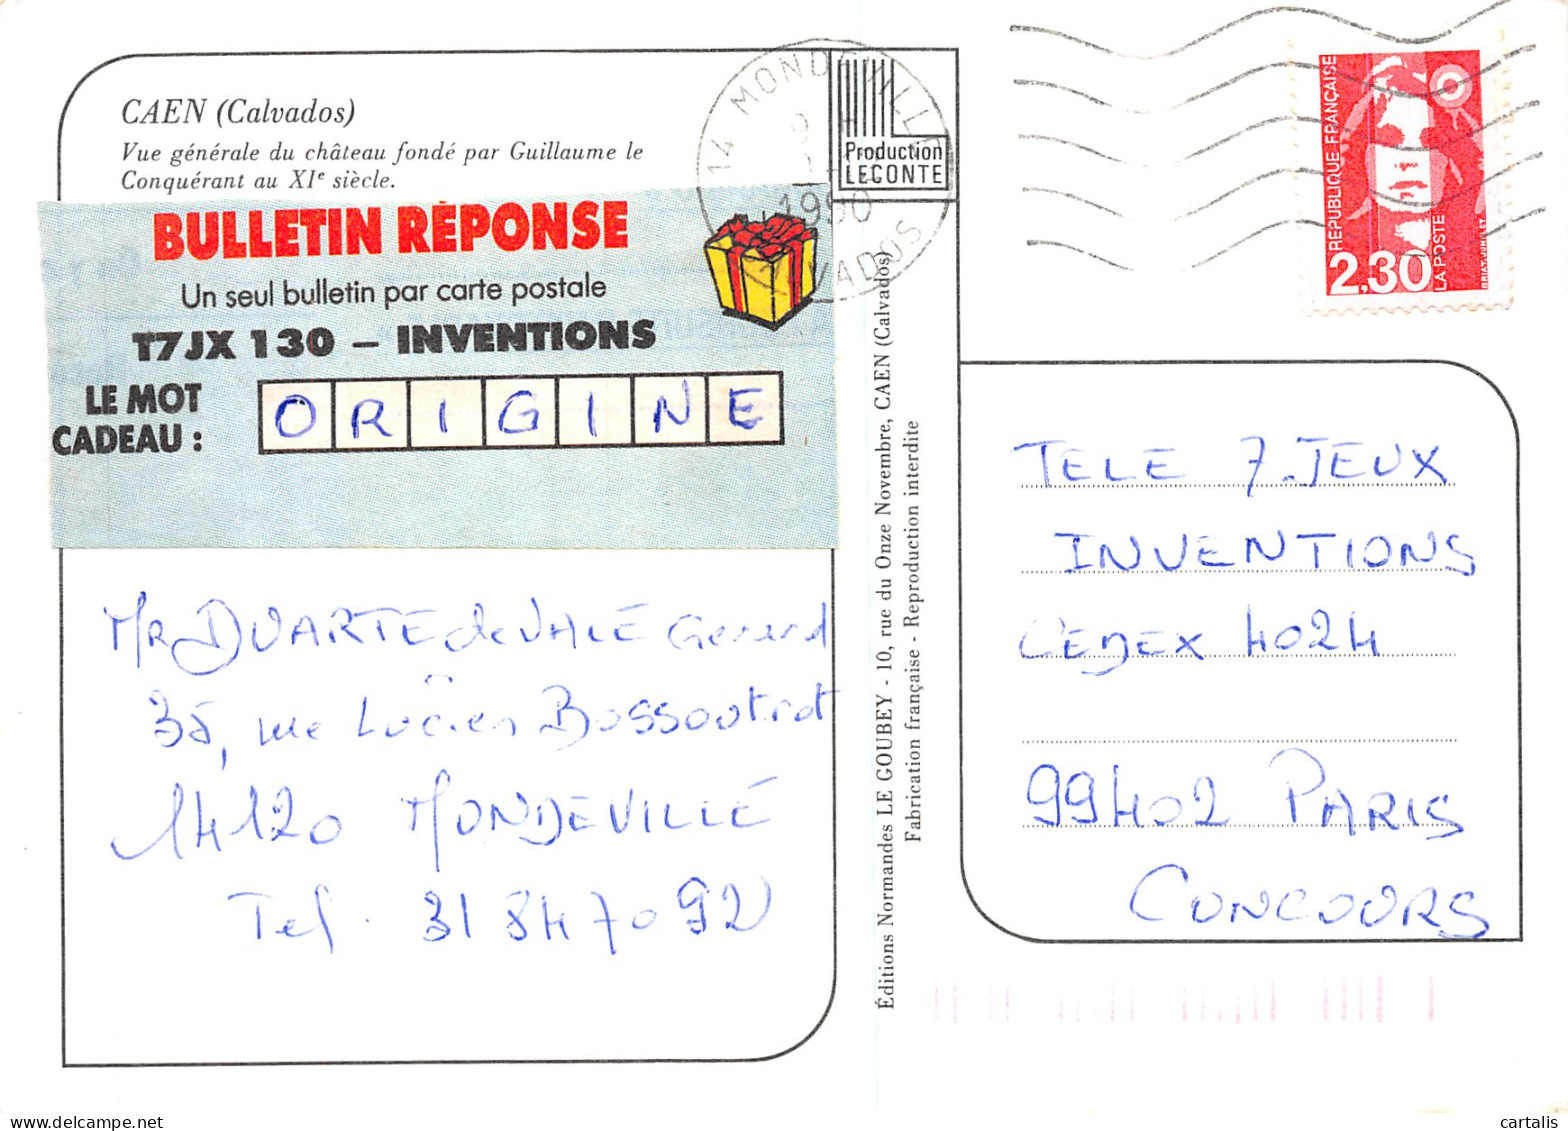 CAEN (Calvados)
Vue générale du château fondé par Guillaume le
Conquérant au XIe siècle.
BULLETIN RÉPONSE
Un seul bulletin par carte postale
T7JX 130 – INVENTIONS
LE MOT
CADEAU :
ORIGINE
MR DUARTE de VALE Gerard
35, rue Lucien Bossoutrot
14120 MONDEVILLE
Tel. 31 84 70 92
14 MONDEVILLE
1990
CALVADOS
Production
LECONTE
Éditions Normandes LE GOUBEY - 10, rue du Onze Novembre, CAEN (Calvados)
Fabrication française - Reproduction interdite
RÉPUBLIQUE FRANÇAISE
2,30
LA POSTE
TELE 7.JEUX
INVENTIONS
CEDEX 4024
99402 PARIS
CONCOURS
www.delcampe.net
cartalis